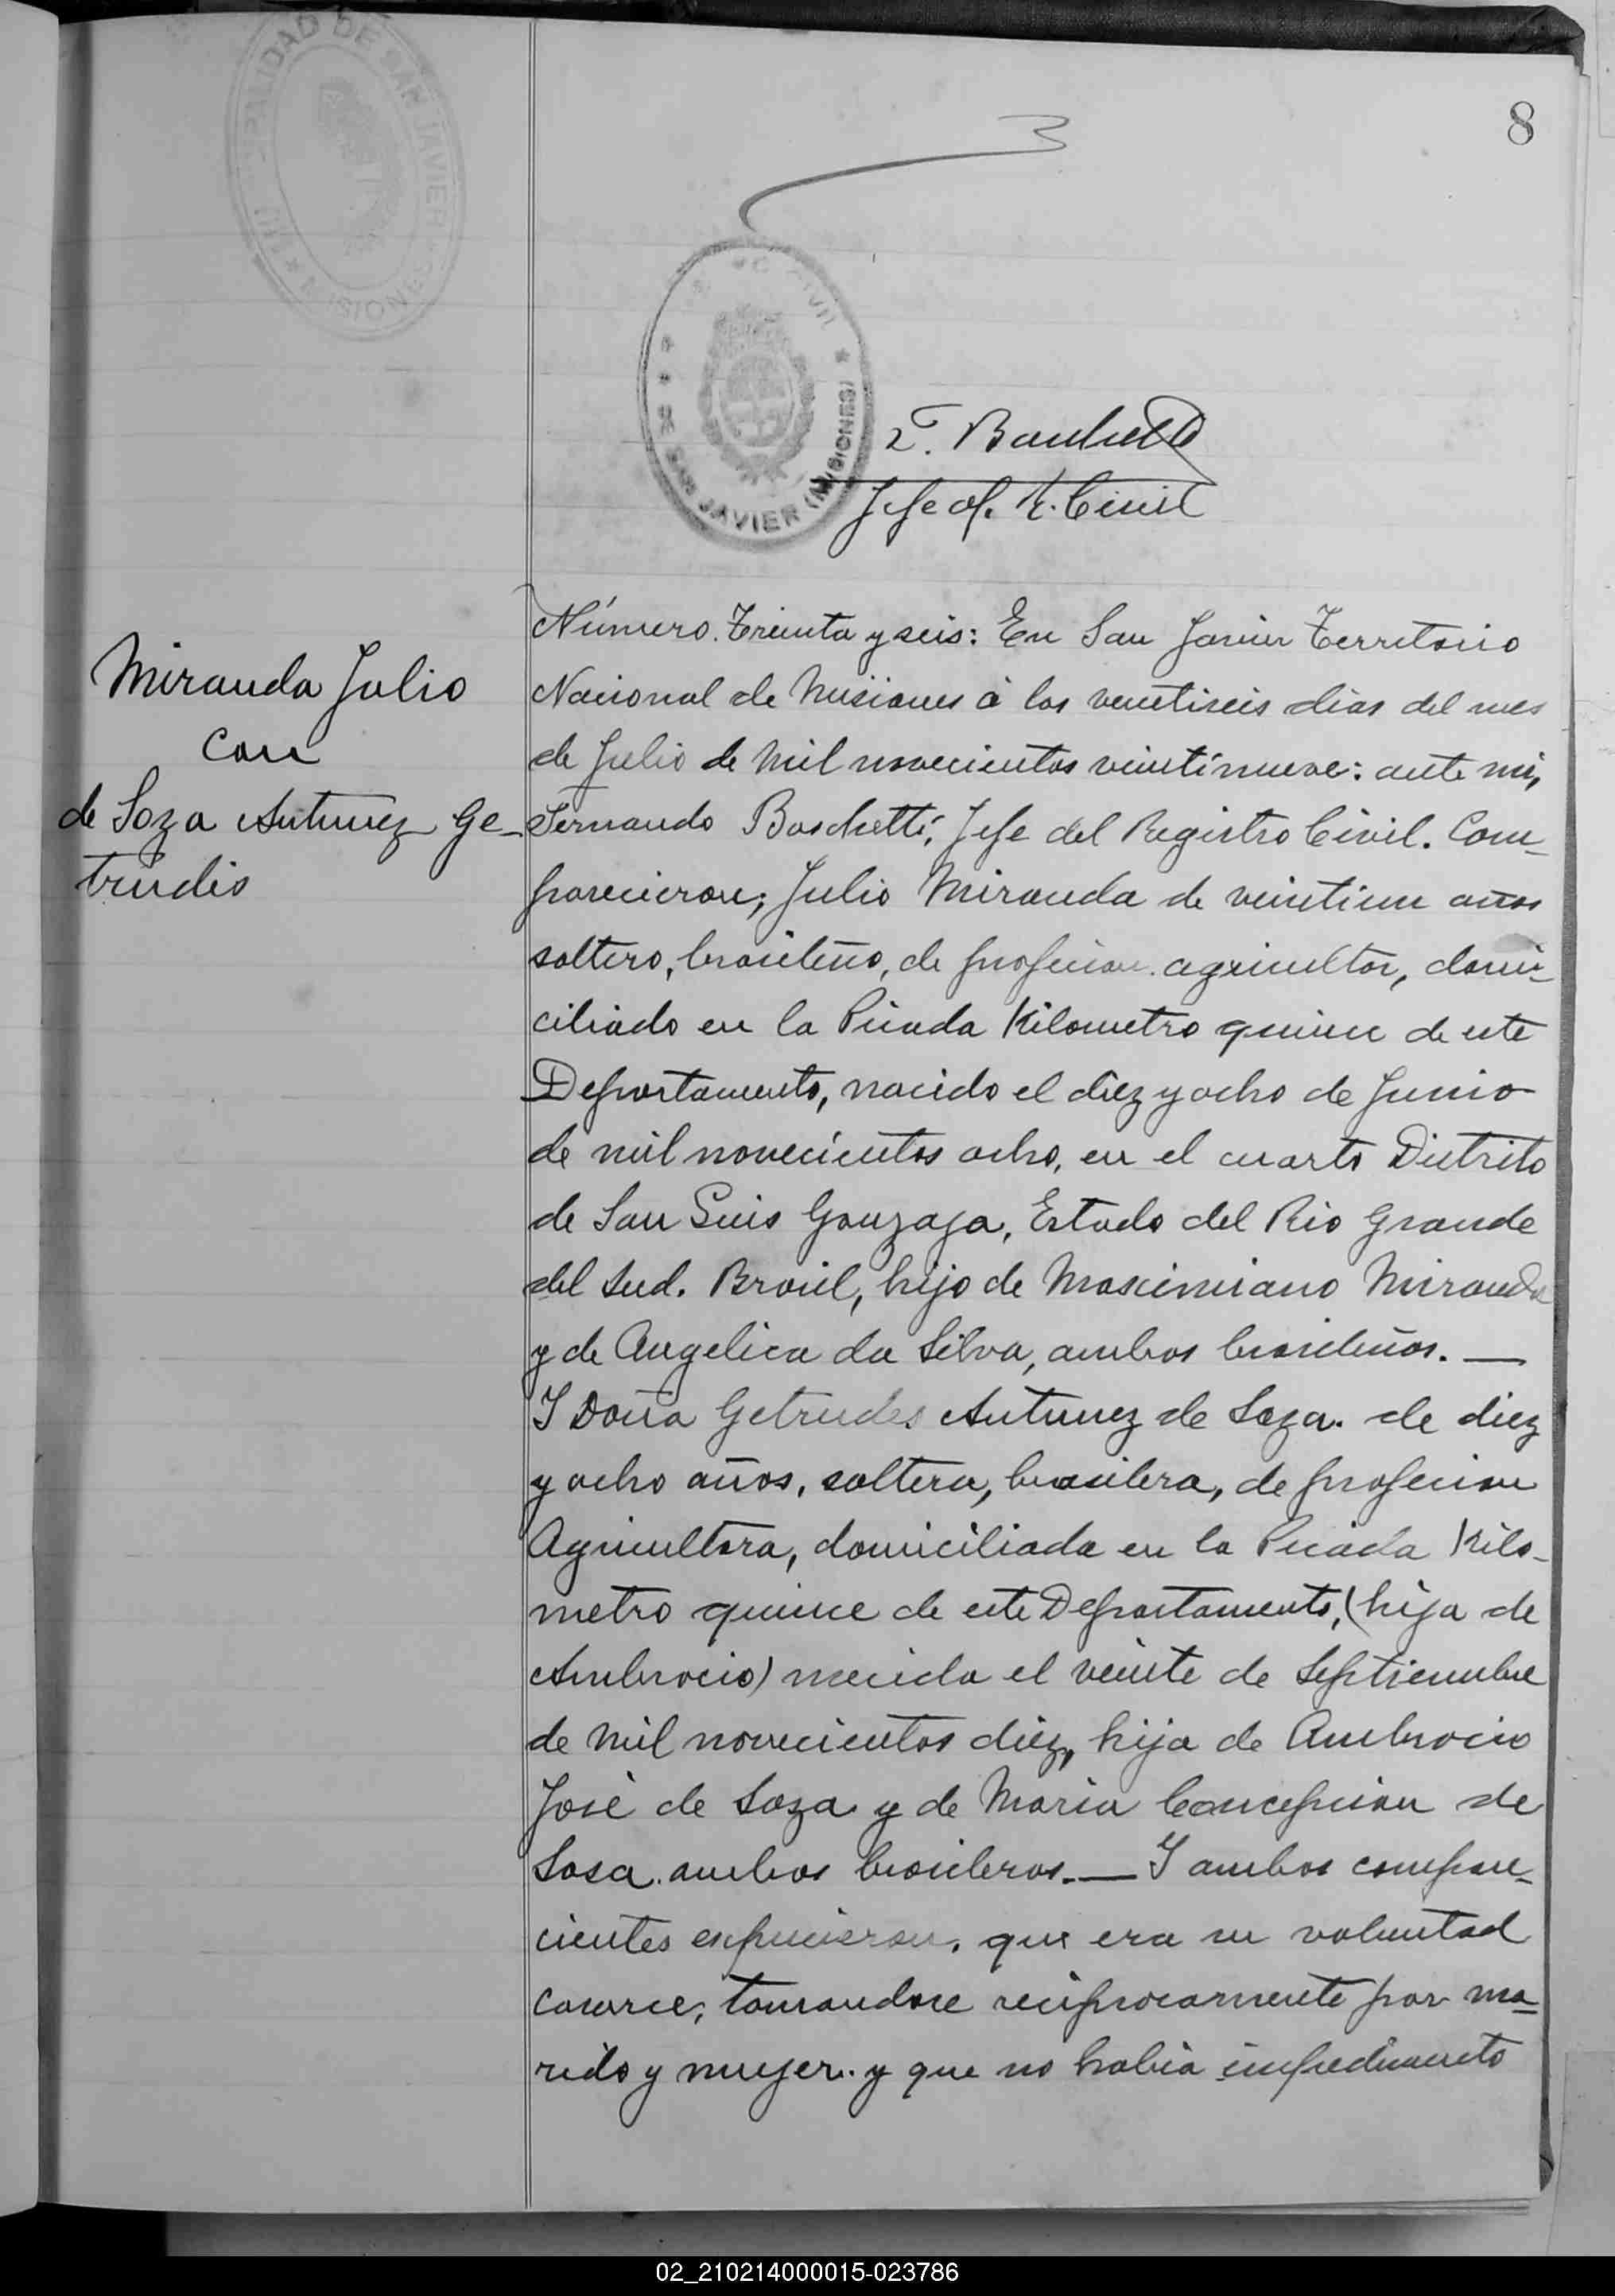 8
MUNICIPALIDAD DE SAN JAVIER
MISIONES
CIVIL
DE SAN JAVIER (MISIONES)
F. Boschetti
Jefe of. R. Civil
Miranda Julio
con
de Soza Antunez Ge-
trudis
Número. Treinta y seis: En San Javier Territorio
Nacional de Misiones à los veintiseis dias del mes
de Julio de mil novecientos veintinueve: ante mi,
Fernando Boschetti, Jefe del Registro Civil. Com-
parecieron; Julio Miranda de veintiun años
soltero, brasileño, de profecion agricultor, domi-
ciliado en la Picada Kilometro quince de este
Departamento, nacido el diez y ocho de Junio
de mil novecientos ocho, en el cuarto Distrito
de San Luis Gonzaga, Estado del Rio Grande
del Sud. Brasil, hijo de Maximiano Miranda
y de Angelica da Silva, ambos brasileños. —
I Doña Getrudes Antunez de Soza. de diez
y ocho años, soltera, brasilera, de profecion
Agricultora, domiciliada en la Picada Kilo-
metro quince de este Departamento, (hija de
Ambrocio) necida el veinte de Septiembre
de mil novecientos diez, hija de Ambrocio
José de Soza y de Maria Concepcion de
Sosa. ambos brasileros. — I ambos compare-
cientes expucieron. que era su voluntad
casarce, tomandose reciprocamente por ma-
rido y mujer. y que no habia impedimento
02_210214000015-023786